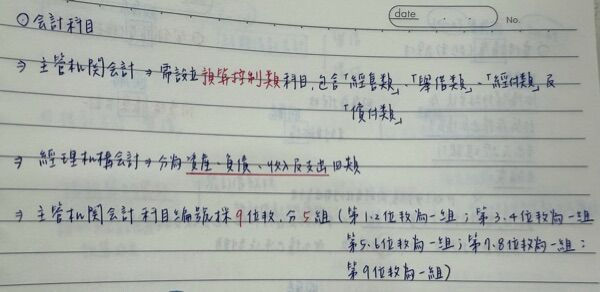 date
No.
⊙會計科目
⇒ 主管机関会計 → 需設立預算控制類科目,包含「經售類」、「舉借類」、「經付類」及
「償付類」
⇒ 經理机構會計 → 分為資產、負債、收入及支出四類
⇒ 主管机関会計科目編號採9位数,分5組(第1.2位数為一組;第3.4位数為一組
第5.6位数為一組;第7.8位数為一組;
第9位数為一組)